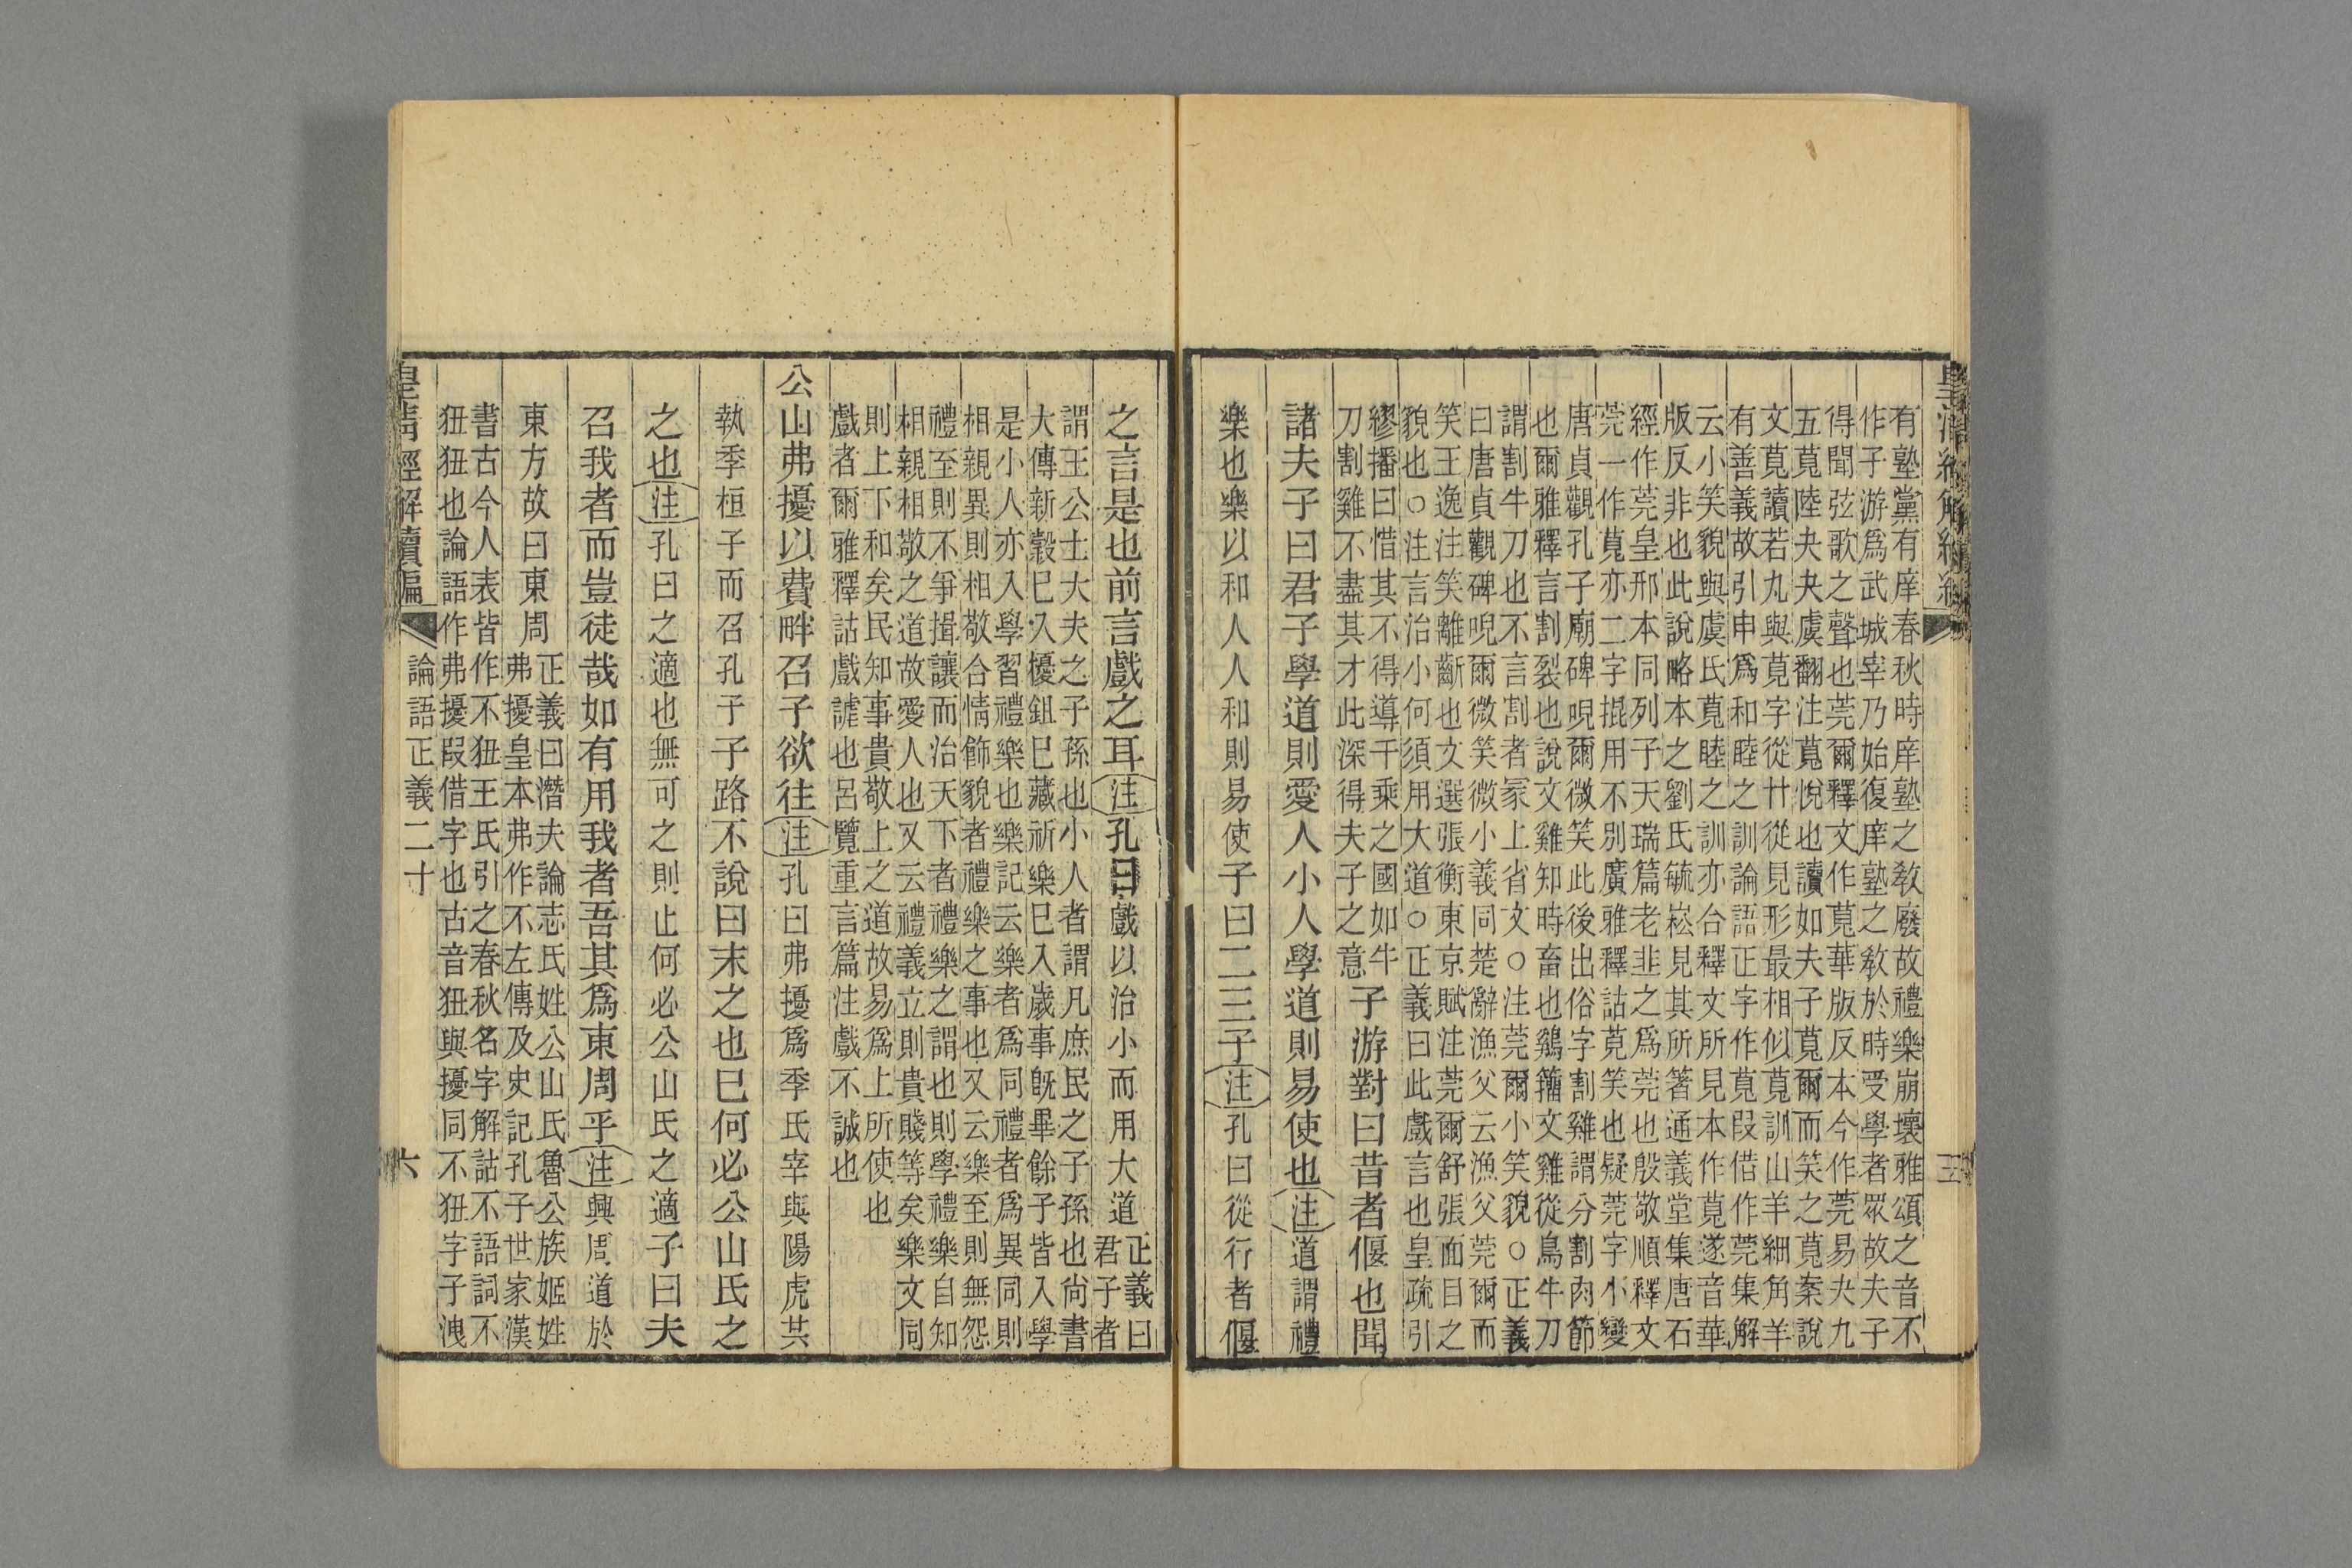 皇清經解續編
三
有塾黨有庠春秋時庠塾之教廢故禮樂崩壞雅頌之音不
作子游爲武城宰乃始復庠塾之教於時受學者眾故夫子
得聞弦歌之聲也莞爾釋文作莧華版反本今作莞易夬九
五莧陸夬夬虞翻注莧悅也讀如夫子莧爾而笑之莧案說
文莧讀若丸與莧字從廿從見形最相似莧訓山羊細角羊
有善義故引申爲和睦之訓論語正字作莧叚借作莞集解
云小笑貌與虞氏莧睦之訓亦合釋文所見本作莧遂音華
版反非也此說略本之劉氏毓崧見其所箸通義堂集唐石
經作莞皇邢本同列子天瑞篇老韭之爲莞也殷敬順釋文
莞一作莧亦二字掍用不別廣雅釋詁莧笑也疑莞字小變
唐貞觀孔子廟碑哯爾微笑此後出俗字割雞謂分割肉節
也爾雅釋言割裂也說文雞知時畜也鷄籀文雞從鳥牛刀
謂割牛刀也不言割者冡上省文○注莞爾小笑貌○正義
曰唐貞觀碑哯爾微笑微小義同楚辭漁父云漁父莞爾而
笑王逸注笑離齗也文選張衡東京賦注莞爾舒張面目之
貌也○注言治小何須用大道○正義曰此戲言也皇疏引
繆播曰惜其不得導千乘之國如牛
刀割雞不盡其才此深得夫子之意
子游對曰昔者偃也聞
諸夫子曰君子學道則愛人小人學道則易使也注道謂禮
樂也樂以和人人和則易使子曰二三子注孔曰從行者偃
之言是也前言戲之耳注孔曰戲以治小而用大道
正義曰
君子者
謂王公士大夫之子孫也小人者謂凡庶民之子孫也尚書
大傳新穀已入耰鉏已藏祈樂已入歲事旣畢餘子皆入學
是小人亦入學習禮樂也樂記云樂者爲同禮者爲異同則
相親異則相敬合情飾貌者禮樂之事也又云樂至則無怨
禮至則不爭揖讓而治天下者禮樂之謂也則學禮樂自知
相親相敬之道故愛人也又云禮義立則貴賤等矣樂文同
則上下和矣民知事貴敬上之道故易爲上所使也
戲者爾雅釋詁戲謔也呂覽重言篇注戲不誠也
公山弗擾以費畔召子欲往注孔曰弗擾爲季氏宰與陽虎共
執季桓子而召孔子子路不說曰末之也已何必公山氏之
之也注孔曰之適也無可之則止何必公山氏之適子曰夫
召我者而豈徒哉如有用我者吾其爲東周乎注興周道於
東方故曰東周
正義曰潛夫論志氏姓公山氏魯公族姬姓
弗擾皇本弗作不左傳及史記孔子世家漢
書古今人表皆作不狃王氏引之春秋名字解詁不語詞不
狃狃也論語作弗擾叚借字也古音狃與擾同不狃字子洩
皇清經解續編
論語正義二十
六